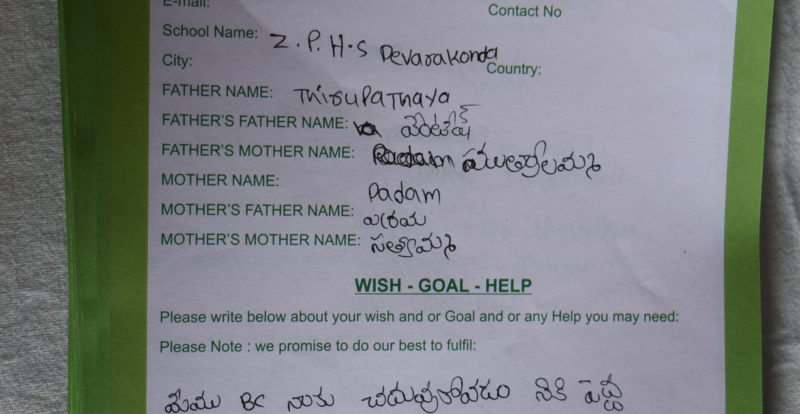 E-mail:
Contact No
School Name: Z.P.H.S Devarakonda
City: Country:
FATHER NAME: Thirupathaya
FATHER'S FATHER NAME: వెంకటేష్
FATHER'S MOTHER NAME: ముత్యాలమ్మ
MOTHER NAME: Padam
MOTHER'S FATHER NAME:
MOTHER'S MOTHER NAME: సత్యామ్మ
WISH - GOAL - HELP
Please write below about your wish and or Goal and or any Help you may need:
Please Note : we promise to do our best to fulfil:
మేము BC నాకు చదువుకోవడం